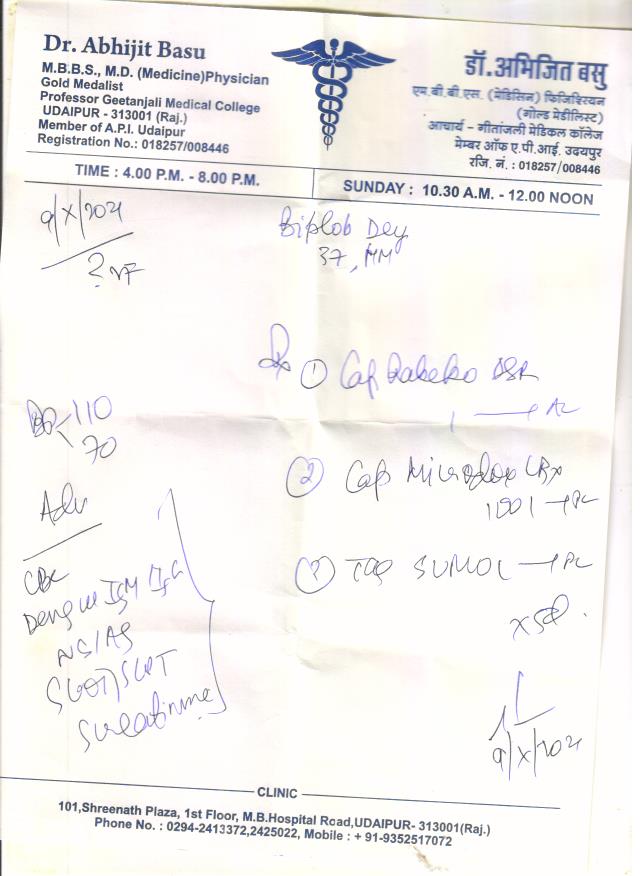 Dr. Abhijit Basu
M.B.B.S., M.D. (Medicine)Physician
Gold Medalist
Professor Geetanjali Medical College
UDAIPUR - 313001 (Raj.)
Member of A.P.I. Udaipur
Registration No.: 018257/008446
डॉ.अभिजित बसु
एम.बी.बी.एस. (मेडिसिन) फिजिशियन
(गोल्ड मेडीलिस्ट)
आचार्य - गीतांजली मेडिकल कॉलेज
मेम्बर ऑफ ए.पी.आई. उदयपुर
रजि. नं. : 018257/008446
TIME : 4.00 P.M. - 8.00 P.M.
SUNDAY : 10.30 A.M. - 12.00 NOON
9/X/2021
Biplob Dey
37,
? VF
Rx ① Cap Rabeko DSR
1 → AC
BP 110
70
② Cap Microdox LBX
1001 → PC
Adv
③ Tab SUMOL → PC
CBC
Dengue IgM IgG
NS1Ag
SGOT/SGPT
S creatinine
x 5d.
9/X/2021
CLINIC
101,Shreenath Plaza, 1st Floor, M.B.Hospital Road,UDAIPUR- 313001(Raj.)
Phone No. : 0294-2413372,2425022, Mobile : + 91-9352517072